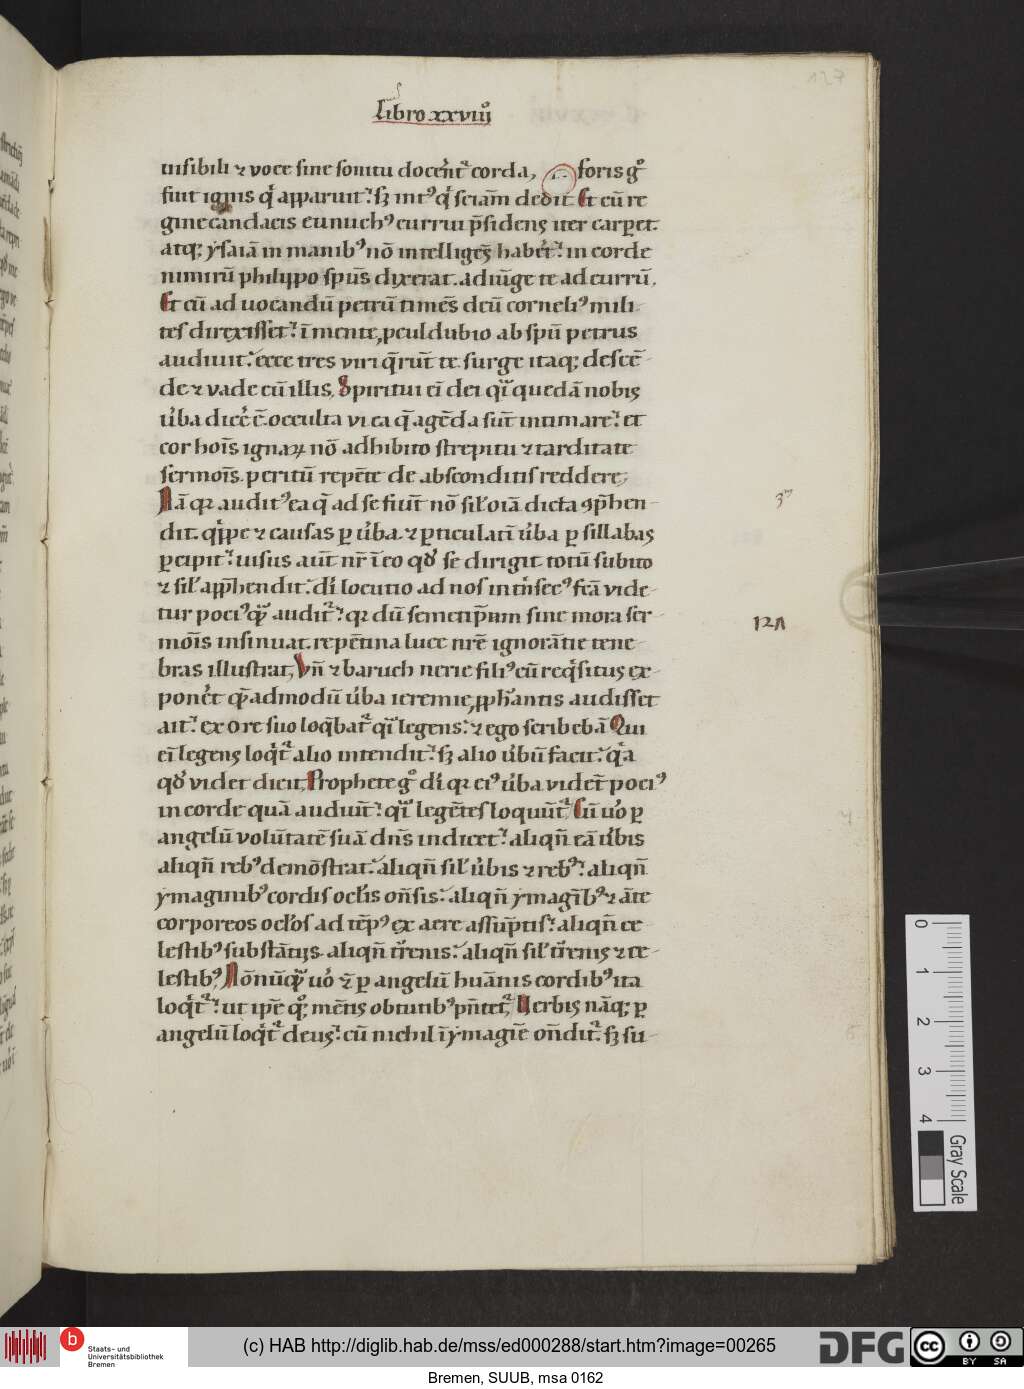 127
Libro xxviiiº
uisibili ⁊ voce sine sonitu docer̄t᷑ corda, foris gº
fuit ignis qͥ apparuit᷑. sꝫ intꝰ qͥ sciam̄ dedit Et cū re
gine candacis eunuchꝰ currui p̄sidens iter carꝑet.
atqꝫ ysaiā in manibꝰ nō intelligēs haber̄ꝫ. in corde
nimirū philippo spūs dixerat. adiūge te ad currū.
Et cū ad uocandū petrū timēs deū corneliꝰ mili
tes direxisset. ī mente, pculdubio ab spū petrus
audiuit. ecce tres viri q̄rūt te. surge itaqꝫ descē
de ⁊ vade cū illis, Spiritui ei dei qͣi quedā nobis
ūba occulta vi ea q̄ agēda sūt intimare. et
cor hoīs ignaꝝ nō adhibito strepitu ⁊ tarditate
sermoīs. peritū repēte de absconditis reddere,
Nā qꝛ auditꝰ ea q̄ ad se fiūt nō sil̄ oīa dicta ꝯp̄hen
dit. qͥppe ⁊ causas ꝑ ūba. ⁊ ꝑticulatī ūba ꝑ sillabas
ꝑcipit. uisus aūt nr̄ ī eo qd̄ se dirigit totū subito
⁊ sil̄ app̄hendit. dī locutio ad nos intrīsecꝰ fc̄ā vide
tur pociꝰ qͣ̄ audit᷑. qꝛ dū semetip̄am sine mora ser
moīs insinuat. repētina luce nr̄ē ignorātie tene
bras illustrat, Vn̄ ⁊ baruch nerie filiꝰ cū reqͥsitus ex
poner̄t qͣ̄admodū ūba ieremie, ꝓph̄antis audisset
ait. ex ore suo loq̄bat᷑ qͣi legens. ⁊ ego scribebā Qui
ei legens loqͥt᷑ alio intendit. sꝫ alio ūbū facit. qͥa
qd̄ videt dicit, Prophete gº dī qꝛ eiꝰ ūba vidēt pociꝰ
in corde quā audiūt. qͣi legētes loquūt᷑ Cū uº ꝑ
angelū volūtatē suā dn̄s indicet. aliqn̄ eā ūbis
aliqn̄ rebꝰ demōstrat. aliqn̄ sil̄ ūbis ⁊ rebꝰ. aliqn̄
ymaginibꝰ cordis ocl̄is on̄sis. aliqn̄ ymagībꝰ ⁊ āte
corporeos ocl̄os ad tēpꝰ ex aere assūptis. aliqn̄ ce
lestibꝰ substātijs. aliqn̄ tr̄enis. aliqn̄ sil̄ tr̄enis ⁊ ce
lestibꝰ, Nōnūqͣ̄ uº ⁊ ꝑ angelū huānis cordibꝰ ita
loqͥt᷑. ut ip̄e qꝫ mētis obtutibꝰ pn̄tet᷑, Verbis nāqꝫ ꝑ
angelū loqͥt᷑ deus. cū nichil ī ymagīe on̄dit᷑. sꝫ su
0
1
2
3
4
Gray Scale
b
Staats- und
Universitätsbibliothek
Bremen
(c) HAB http://diglib.hab.de/mss/ed000288/start.htm?image=00265
DFG
cc
BY SA
Bremen, SUUB, msa 0162